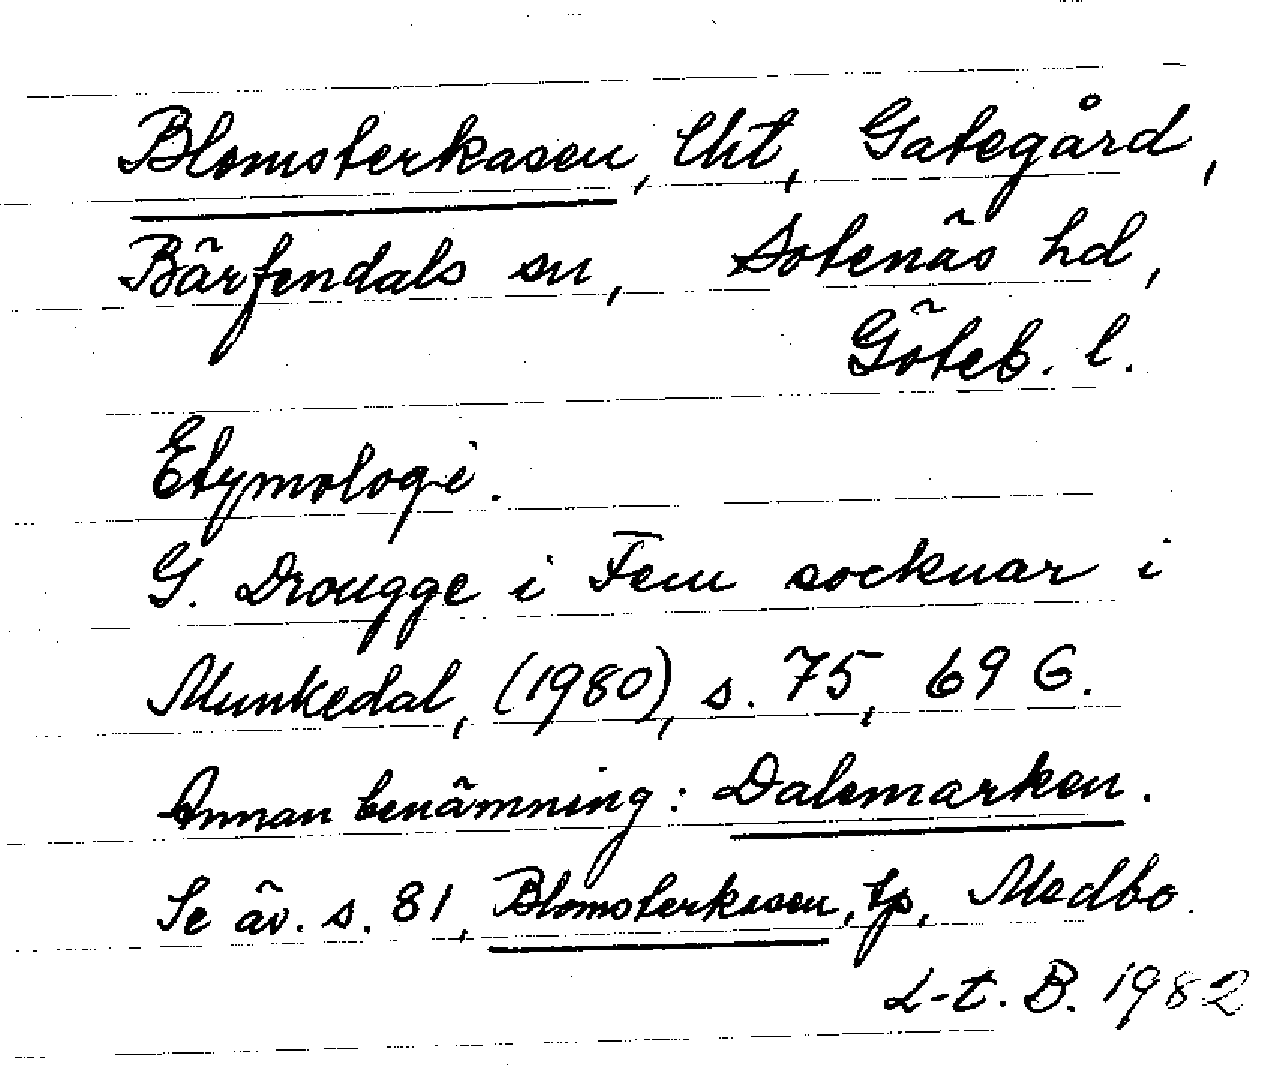 Blomsterkasen, lht, Gategård,
Bärfendals sn, Sotenäs hd,
Göteb. l.
Etymologi.
G. Drougge i Fem socknar i
Munkedal, (1980), s. 75, 69 G.
Annan benämning: Dalemarken.
Se äv. s. 81, Blomsterkasen, tp, Medbo.
L-t. B. 1982